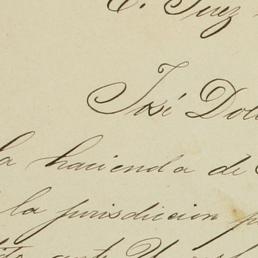 C. Juez
José Dol
la hacienda de
la jurisdiccion p
ante U